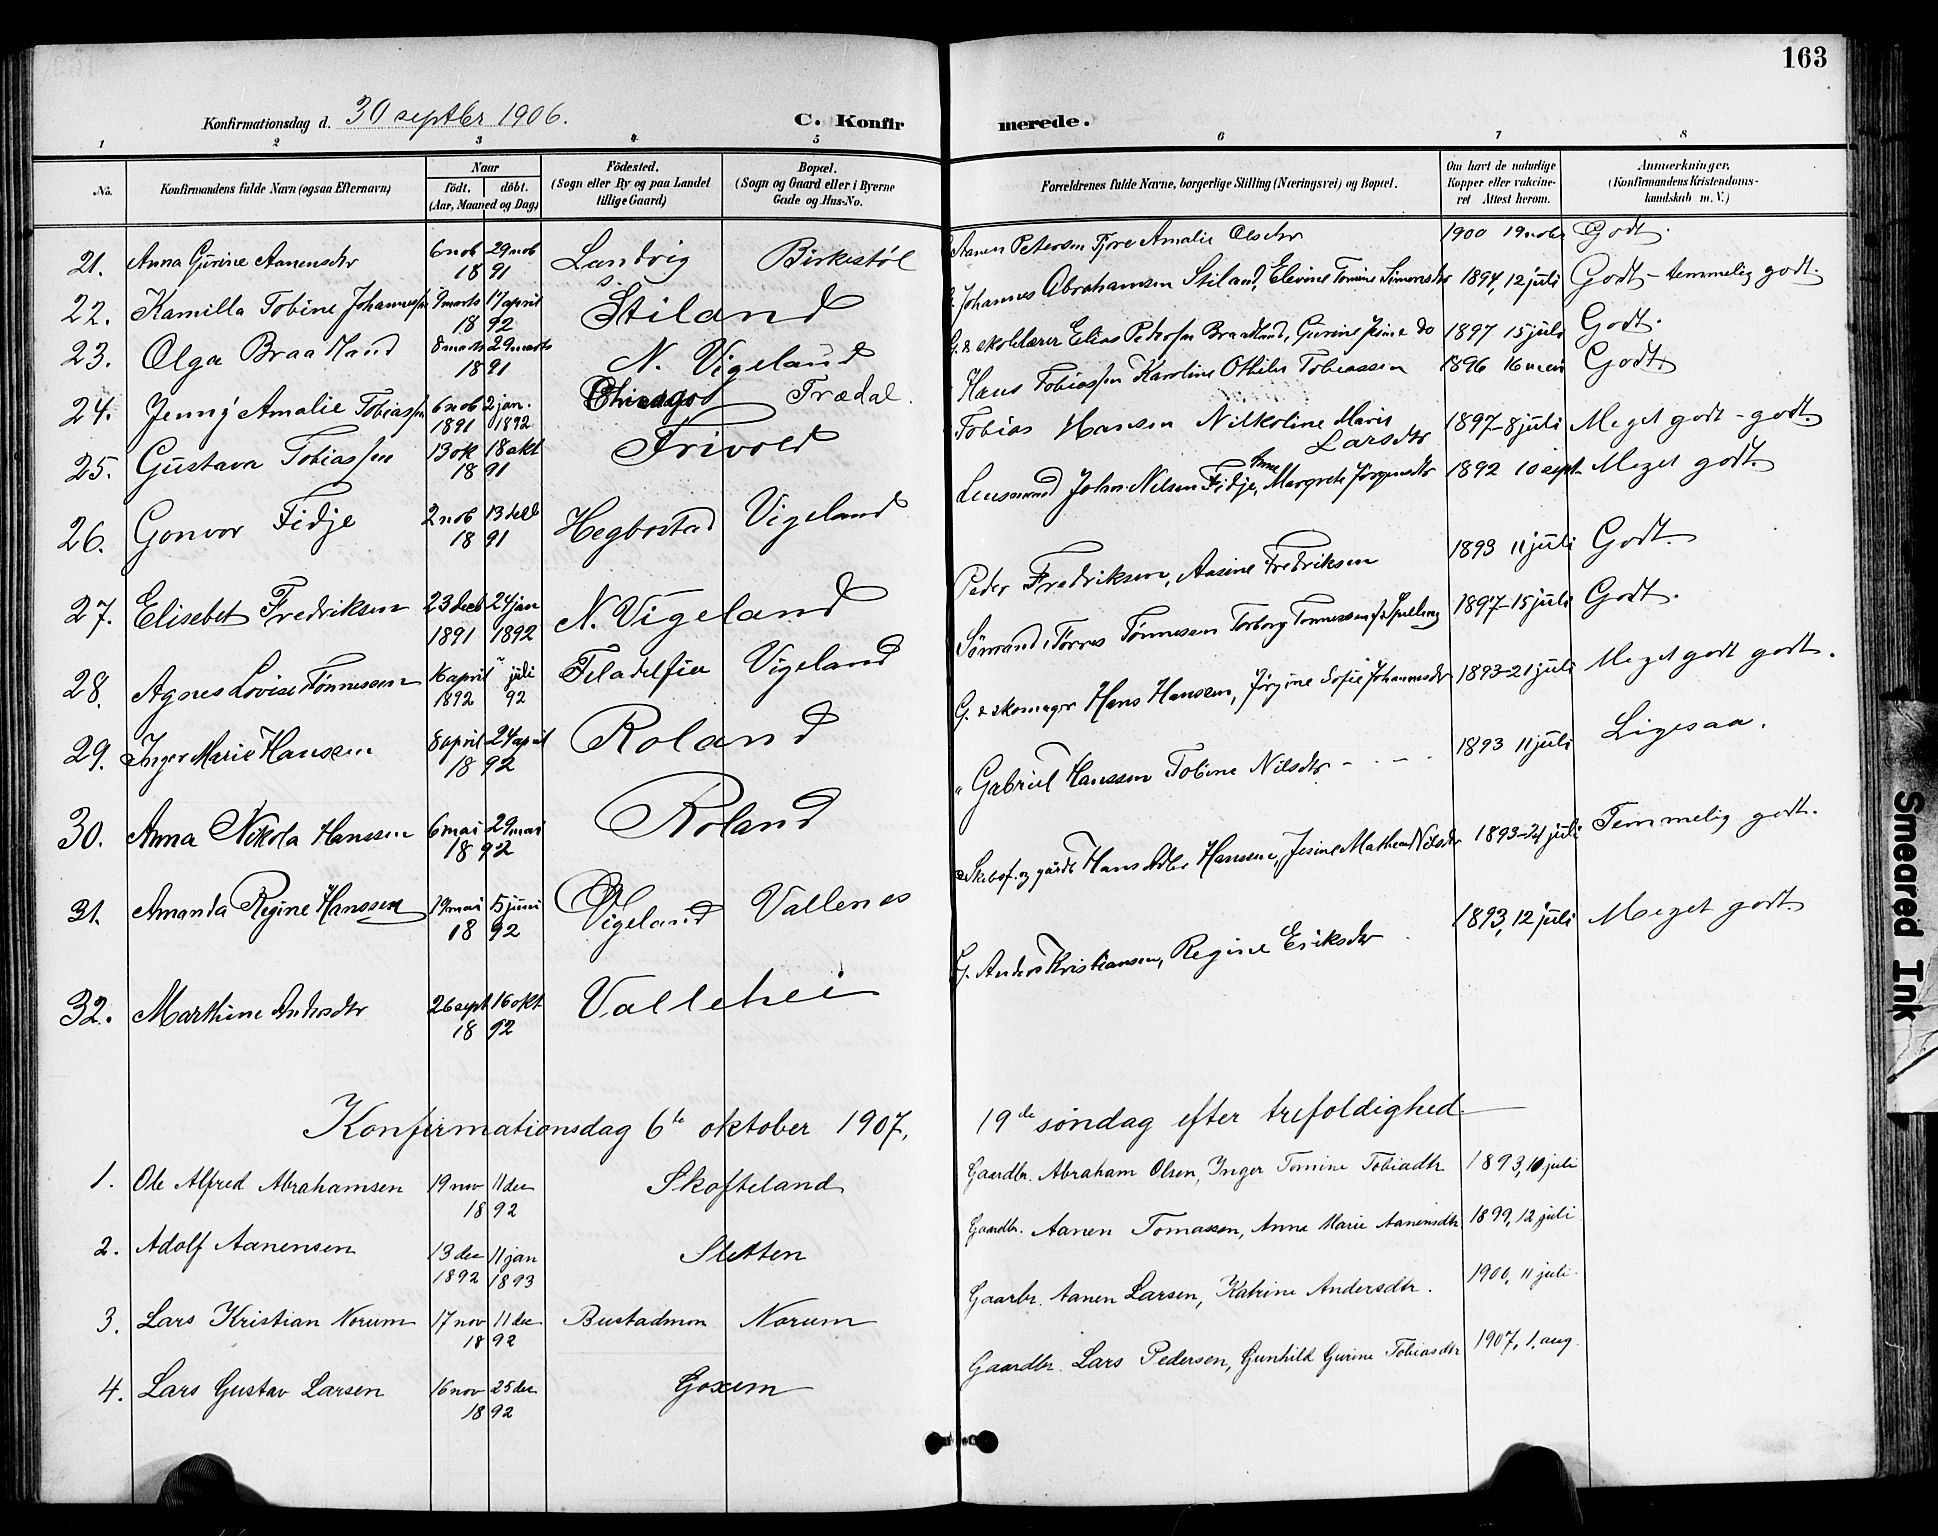 163
Konfirmationsdag d. 30 septbr 1906. C. Konfirmerede.
1 2 3 4 5 6 7 8
No. Konfirmandens fulde Navn (ogsaa Efternavn) Naar födt. döbt. (Aar, Maaned og Dag) Födested. (Sogn eller By og paa Landet tillige Gaard) Bopæl. (Sogn og Gaard eller i Byerne Gade og Hus-No. Forældrenes fulde Navne, borgerlige Stilling (Næringsvei) og Bopæl. Om havt de naturlige Kopper eller vaccineret Attest herom. Anmerkninger, (Konfirmandens Kristendomskundskab m. V.)
21. Anna Gurine Aanensdtr 6 nob 29 nob 1891 Landvig Birkestøl Aanen Petersen Tjore Amalie Olsdtr 1900 19 nobr Godt.
22. Kamilla Tobine Johannessen 9 marts 17 april 1892 Stiland Johannes Abrahamsen Stiland, Elevine Tomine Simonsdtr 1894, 12 juli Godt - temmelig godt.
23. Olga Braadland 8 mars 29 marts 1891 N. Vigeland G. & skolelærer Elias Pedersen Braadland, Gurine Jesine do 1897 15 juli Godt.
24. Jenny Amalie Tobiassen 6 nob 1891 2 jan. 1892 Chicago Trædal. Hans Tobiassen Karoline Othilie Tobiassen 1896 16 mai Godt.
25. Gustava Tobiassen 13 ok 18 okt 1891 Frivold Tobias Hansen Nilkoline Marie Larsdtr 1897-8 juli Meget godt - godt.
26. Gonvor Fidje 2 nob 13 deb 1891 Hegbostad Vigeland Lensmand John Nilsen Fidje, Anne Margrete Jörgensdtr 1892 10 sept. Meget godt.
27. Elisebet Fredriksen 23 deb 1891 24 jan 1892 N. Vigeland Peder Fredriksen, Aasine Fredriksen 1893 11 juli Godt.
28. Agnes Lovise Tönnessen 16 april 1892 " juli 92 Filadelfia Vigeland Sömand Törres Tönnessen Torborg Tonnessen 1897-15 juli Godt.
29. Inger Marie Hanssen 8 april 24 april 1892 Roland G. & skomager Hans Hanssen, Jörgine Sofie Johannesdtr 1893-21 juli Meget godt godt.
30. Anna Nikola Hanssen 6 mai 29 mai 1892 Roland " Gabriel Hanssen Tobine Nilsdtr - - - - 1893 11 juli Ligesaa.
31. Amanda Regine Hanssen 19 mai 5 juni 1892 Vigeland Vallenes Hans Adler Hanssen, Jesine Mathea Nilsdtr 1893-21 juli Temmelig godt.
32. Marthine Andersdtr 26 sept 16 okt 1892 Vallehei G. Anders Kristiansen, Regine Eriksdtr 1893, 12 juli Meget godt.
Konfirmationsdag 6te oktober 1907, 19de søndag efter trefoldighed.
1. Ole Alfred Abrahamsen 19 nov 11 dec 1892 Skofteland Gaardbr. Abraham Olsen, Inger Tomine Tobiadtr 1893, 10 juli
2. Adolf Aanensen 13 dec 1892 11 jan 1893 Sletten Gaardbr. Aanen Tomassen, Anne Marie Aanensdtr 1899, 12 juli
3. Lars Kristian Norum 17 nov 11 dec 1892 Bustadmon Norum Gaarbr. Aanen Larsen, Katrine Andersdtr. 1900, 11 juli.
4. Lars Gustav Larsen 16 nov 25 dec 1892 Goxem Gaardbr. Lars Pedersen, Gunhild Gurine Tobiasdtr 1907, 1. aug.
Smeared Ink